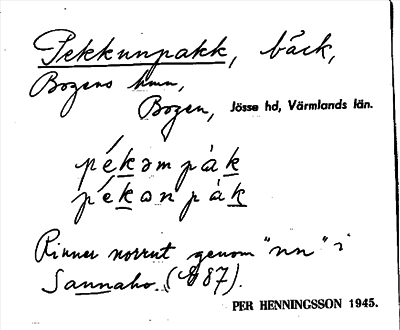 Pekkunpakk, bäck,
Bogens hmn,
Bogen, Jösse hd, Värmlands län.
pékəmpàk
pékənpàk
Rinner norrut genom "nn" i
Sannaho. (87).
PER HENNINGSSON 1945.